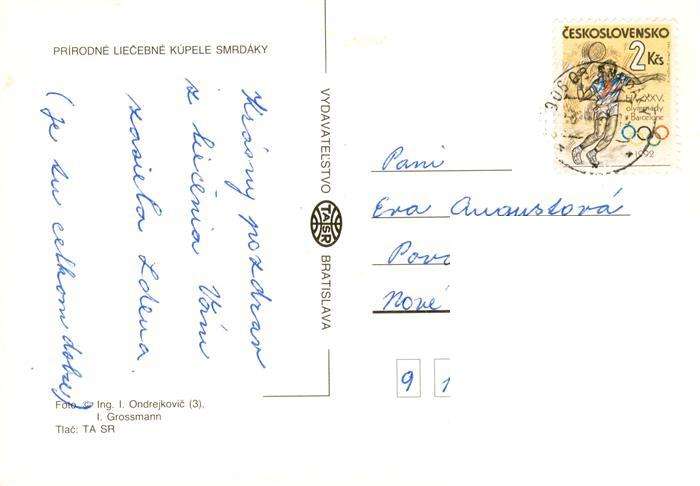 PRÍRODNÉ LIEČEBNÉ KÚPELE SMRDÁKY
Krásny pozdrav
z liečenia Vám
zasiela Zdena.
(je tu celkom dobre)
Foto © Ing. I. Ondrejkovič (3),
I. Grossmann
Tlač: TA SR
VYDAVATEĽSTVO TASR BRATISLAVA
ČESKOSLOVENSKO
2 Kčs
XXV.
olympiády
v Barcelone
1992
Pani
Eva Augustová
Pov
Nové
9 1